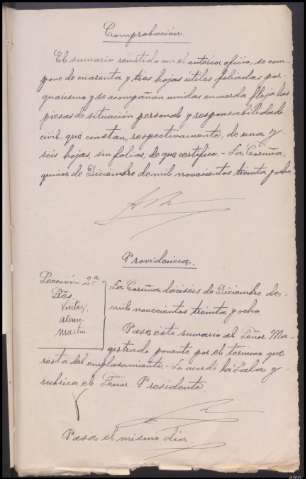 Comprobación.
El sumario remitido con el anterior oficio, se com-
pone de cuarenta y tres hojas útiles foliadas por
y se acompañan unidas en cuerda floja las
piezas de situación personal y responsabilidad
civil que constan, respectivamente, de una y
seis hojas sin foliar, de que certifico. - La Coruña,
quince de Diciembre de mil novecientos treinta y ocho
Providencia.
Sección 2ª
La Coruña dieciseis de Diciembre de
mil novecientos treinta y ocho
Pase este sumario al Señor Ma-
gistrado ponente por el termino que
resta del emplazamiento. Lo acordó la Sala y
rubrica el Señor Presidente
Pasa el mismo dia